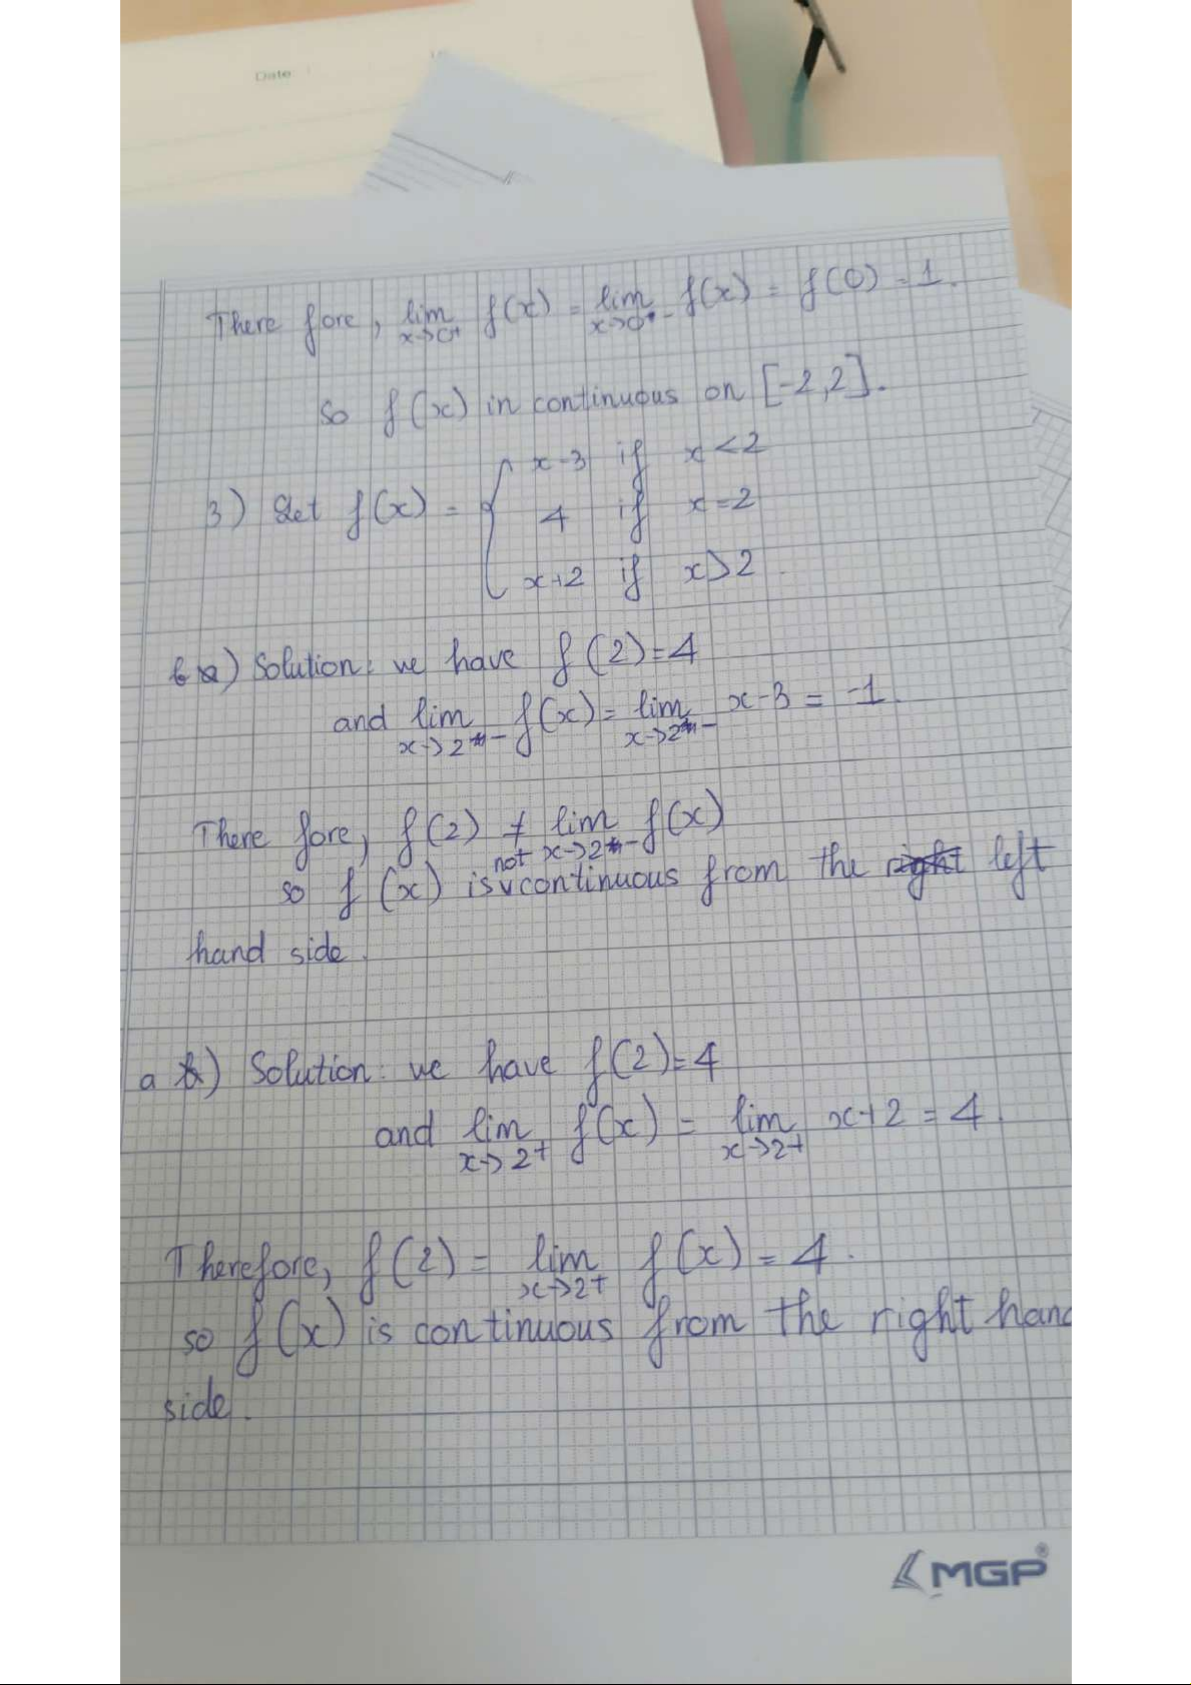 Date
There fore, lim x→0+ f(x) = lim x→0- f(x) = f(0) = 1.
so f(x) in continuous on [-2,2].
3) Let f(x) = { x-3 if x<2
4 if x=2
x+2 if x>2.
b) Solution: we have f(2)=4
and lim x→2- f(x) = lim x→2- x-3 = -1.
There fore, f(2) ≠ lim x→2- f(x)
so f(x) is not continuous from the left
hand side.
a) Solution: we have f(2)=4
and lim x→2+ f(x) = lim x→2+ x+2 = 4.
Therefore, f(2) = lim x→2+ f(x) = 4.
so f(x) is continuous from the right hand
side.
MGP®